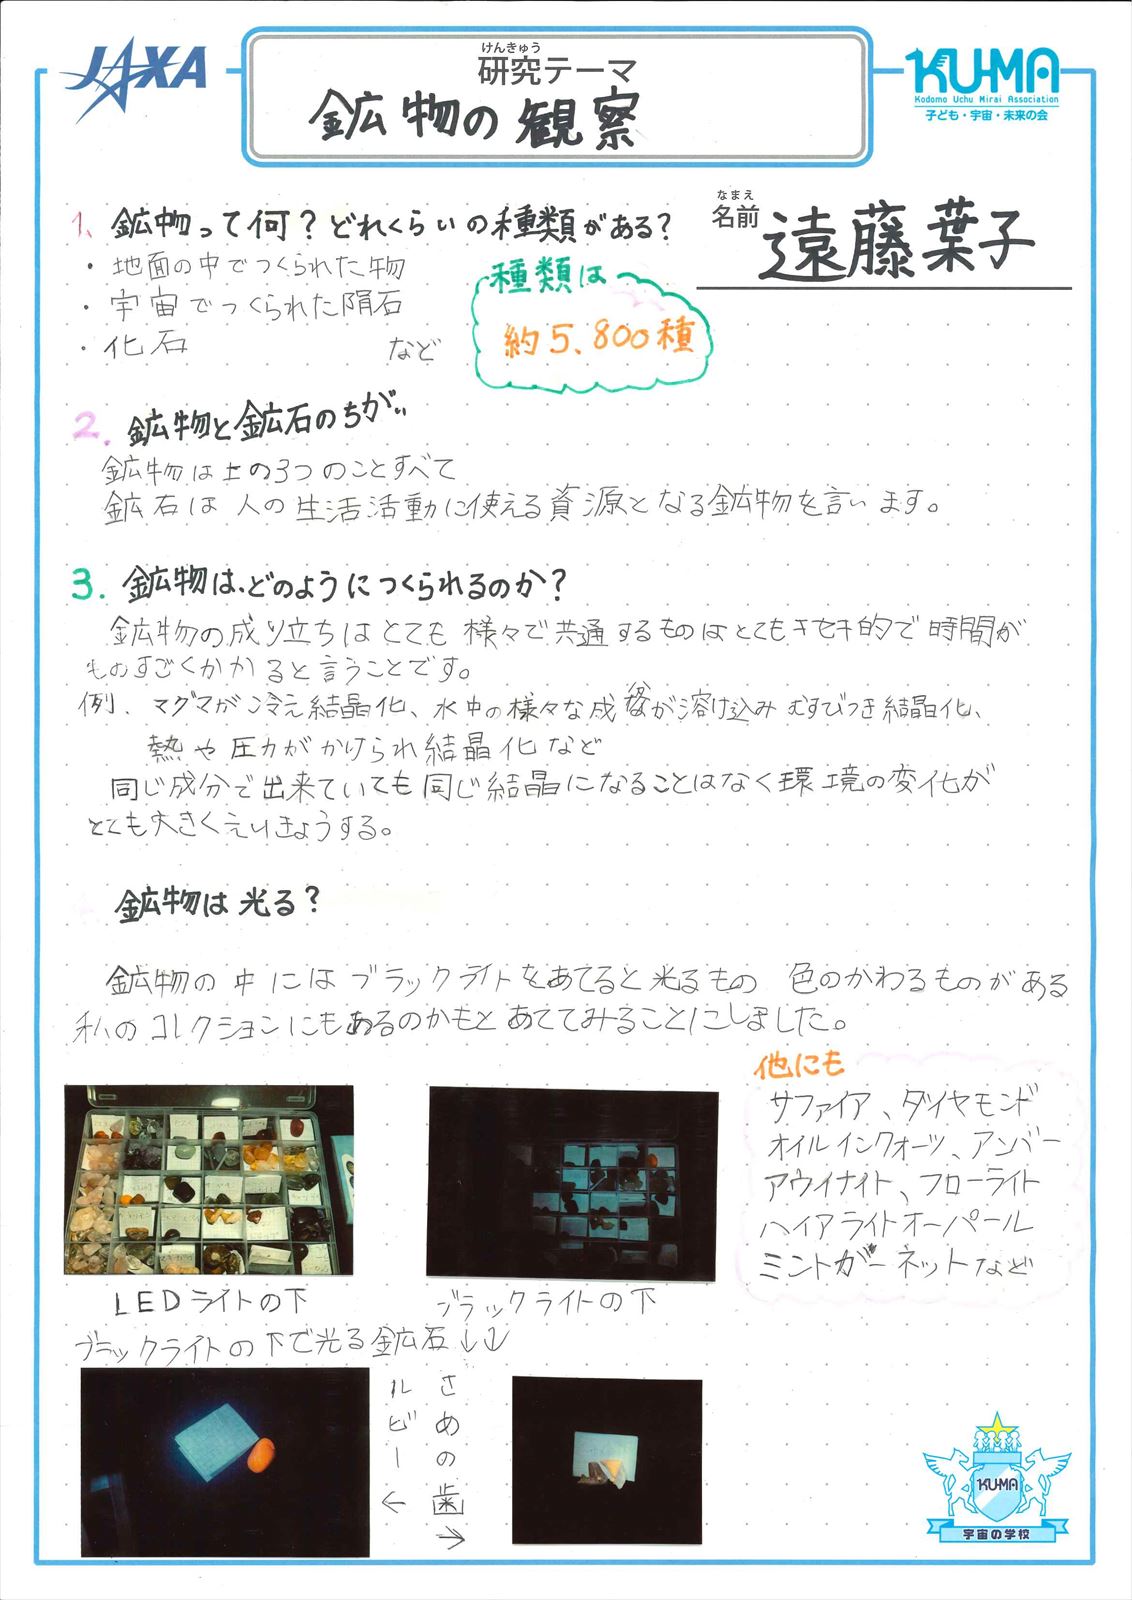 JAXA
けんきゅう
研究テーマ
鉱物の観察
KU-MA
Kodomo Uchu Mirai Association
子ども・宇宙・未来の会
なまえ
名前
遠藤葉子
1、鉱物って何？どれくらいの種類がある？
・地面の中でつくられた物
・宇宙でつくられた隕石
・化石 など
種類は
約5,800種
2. 鉱物と鉱石のちがい
鉱物は上の3つのことすべて
鉱石は人の生活活動に使える資源となる鉱物を言います。
3. 鉱物は、どのようにつくられるのか？
鉱物の成り立ちはとても様々で共通するものはとてもキセキ的で時間が
ものすごくかかると言うことです。
例、マグマが冷え結晶化、水中の様々な成分が溶け込みむすびつき結晶化、
熱や圧力がかけられ結晶化など
同じ成分で出来ていても同じ結晶になることはなく環境の変化が
とても大きくえいきょうする。
鉱物は光る？
鉱物の中にはブラックライトをあてると光るもの 色のかわるものがある
私のコレクションにもあるのかもとあててみることにしました。
他にも
サファイア、ダイヤモンド
オイルインクォーツ、アンバー
アウイナイト、フローライト
ハイアライトオーパール
ミントガーネットなど
LEDライトの下
ブラックライトの下
ブラックライトの下で光る鉱石↓↓
ルビー←
さめの歯→
KU-MA
宇宙の学校